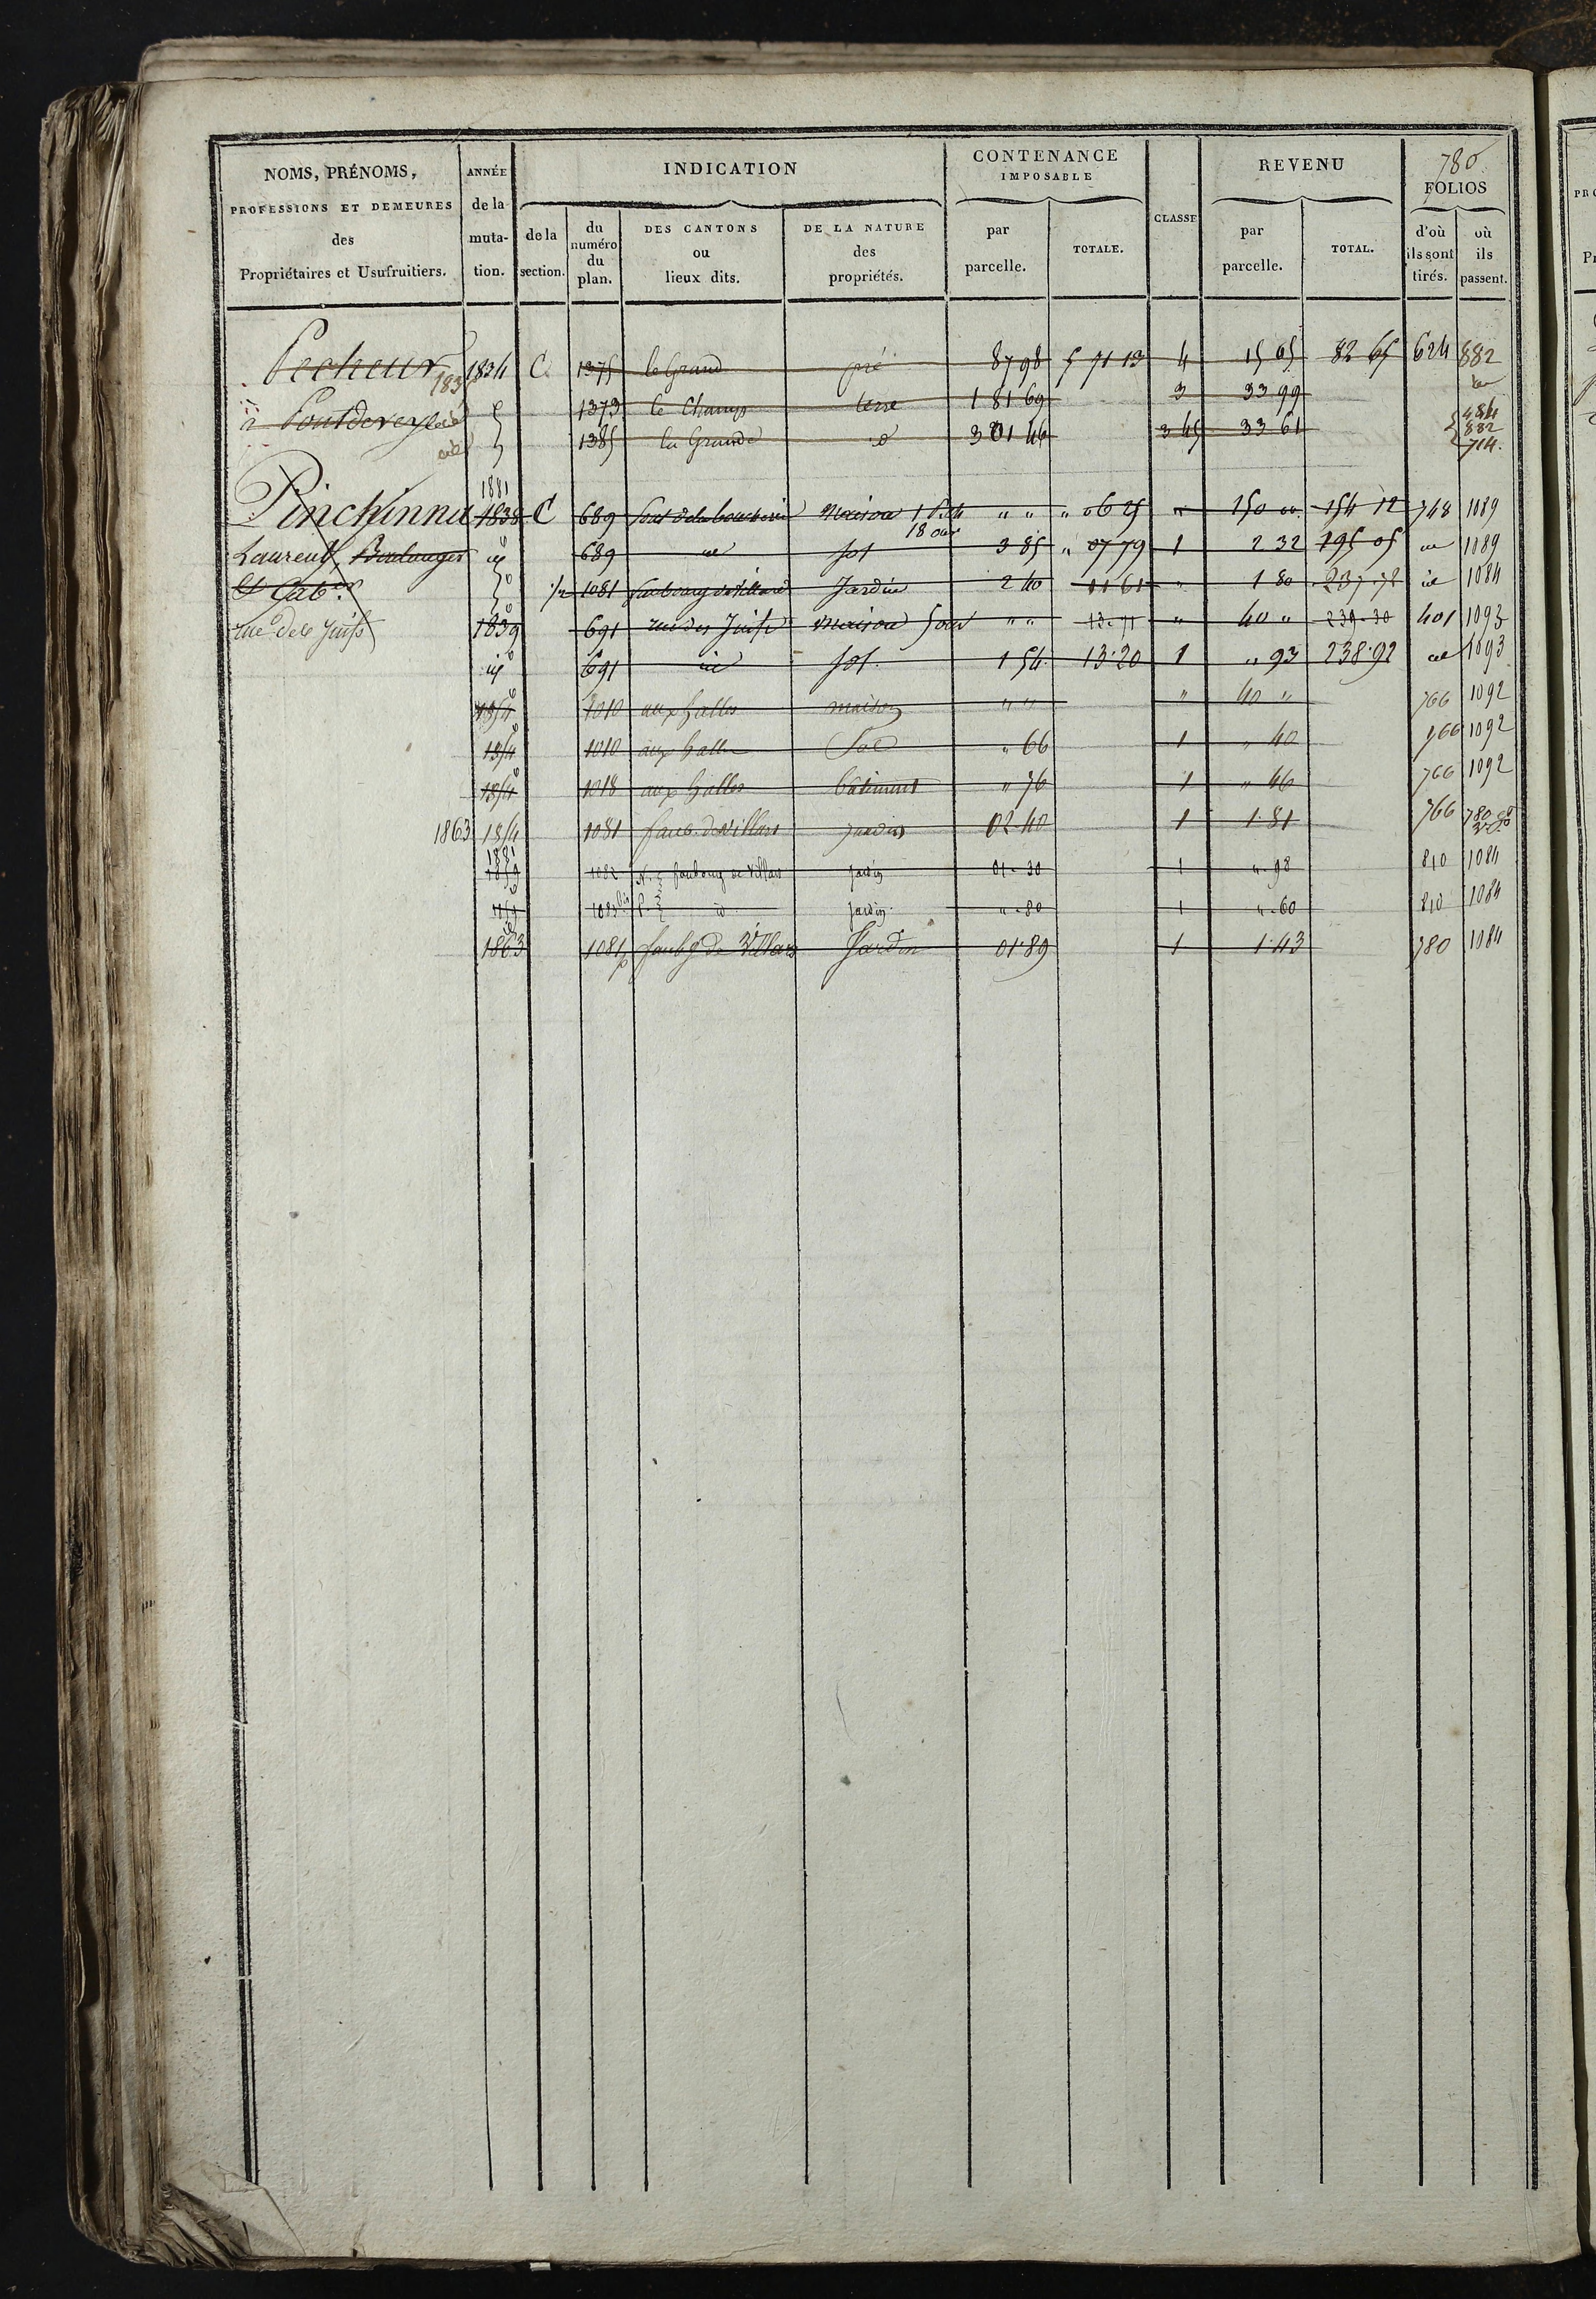 780
NOMS, PRÉNOMS, PROFESSIONS ET DEMEURES des Propriétaires et Usufruitiers.
ANNÉE de la muta- tion.
INDICATION
de la section.
du numéro du plan.
DES CANTONS ou lieux dits.
DE LA NATURE des propriétés.
CONTENANCE IMPOSABLE
par parcelle.
TOTALE.
CLASSE
REVENU
par parcelle.
TOTAL.
FOLIOS
d'où ils sont tirés.
où ils passent.
Pecheur 1834 C 1375 le Grand pré 87 98 5 71 13 4 15 65 82 65 624 882
1373 le Champ terre 1 81 69 3 33 99
1385 la Grande d 3 01 46 3 45 33 61 484 882 714.
1881
Pinchinna 1838 C 689 maison 1 18 ouv " " " 06 25 " 150 00 154 12 748 1089
Laurent, Boulanger id 689 id sol 3 85 " 07 79 1 2 32 195 05 id 1089
et Cab.r 1/2 1081 faubourg de Villars Jardin 2 40 11 61 " 1 80 237.78 id 1084
rue des Juifs 1839 691 rue des Juifs maison " " 13.11 " 40 " 239.30 401 1093
id 691 id sol. 1 54 13.20 1 " 93 238.92 id 1093
1854 1010 aux halles maison " " " 40 " 766 1092
1854 1010 aux halles Sol " 66 1 " 40 766 1092
1854 1018 aux halles bâtiment " 76 1 " 46 766 1092
1863 1854 1081 faub. de Villars jardin 02 40 1 1.81 766 780
1881
1859 1082 faubourg de Villars jardin 01.30 1 ".98 810 1084
1859 1083 bis id jardin. ".80 1 ".60 810 1084
1863 1081 p faubg de Villars Jardin 01.89 1 1.43 780 1084